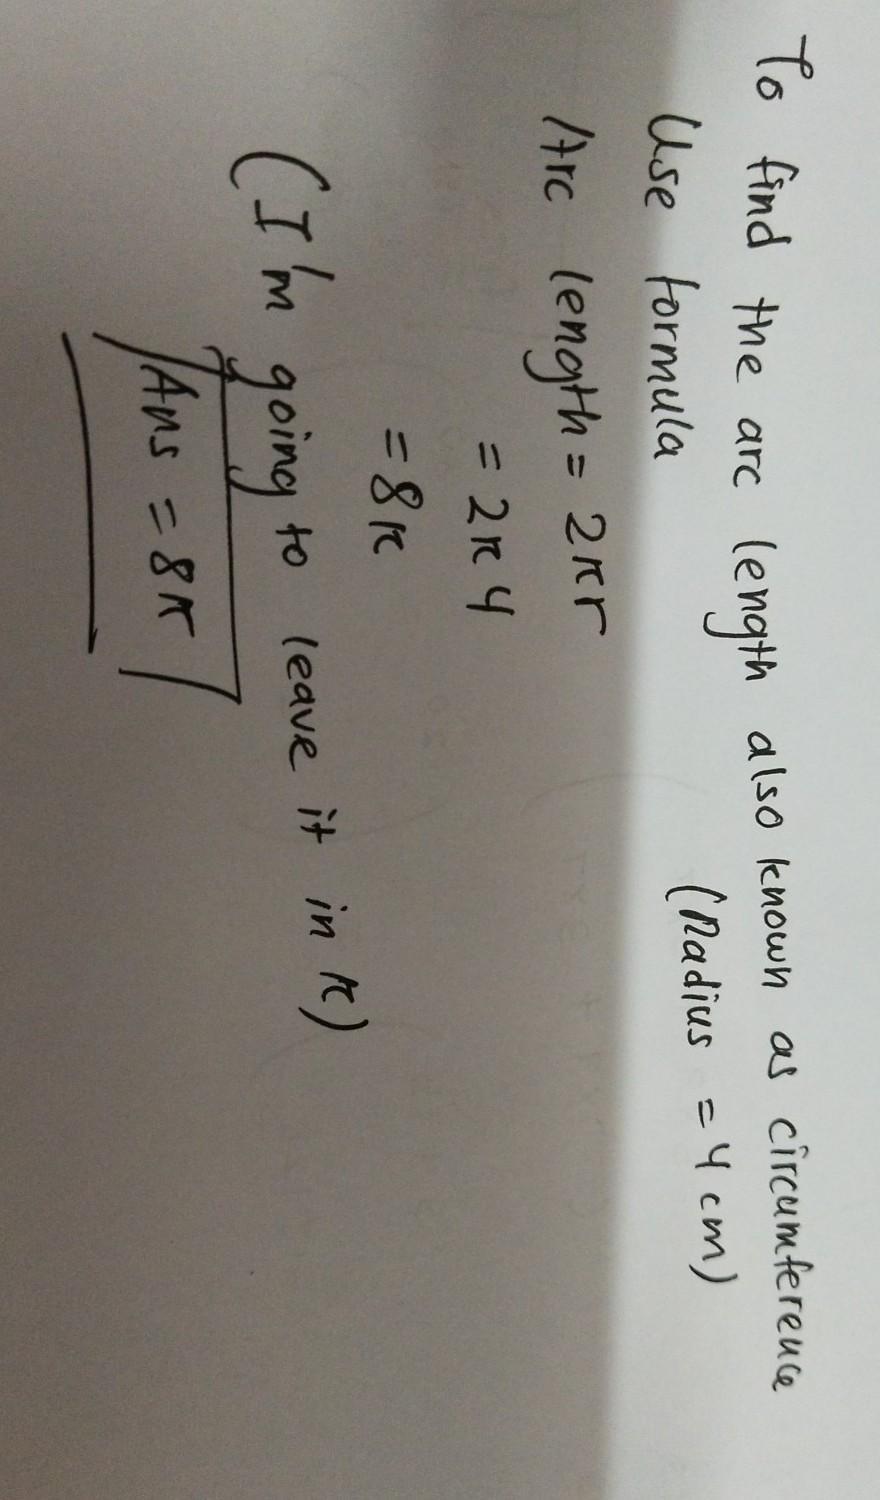 To find the arc length also known as circumference
Use formula (Radius = 4 cm)
Arc length = 2πr
= 2π4
= 8π
(I'm going to leave it in π)
Ans = 8π